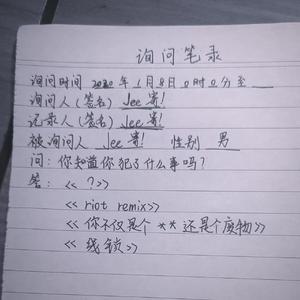 询问笔录
询问时间 2020 年 1 月 8 日 0 时 0 分至
询问人 (签名) Jee 寄!
记录人 (签名) Jee 寄!
被询问人 Jee 寄! 性别 男
问: 你知道你犯了什么事吗?
答: << ? >>
<< riot remix>>
<< 你不仅是个 ** 还是个废物>>
<< 线锁>>